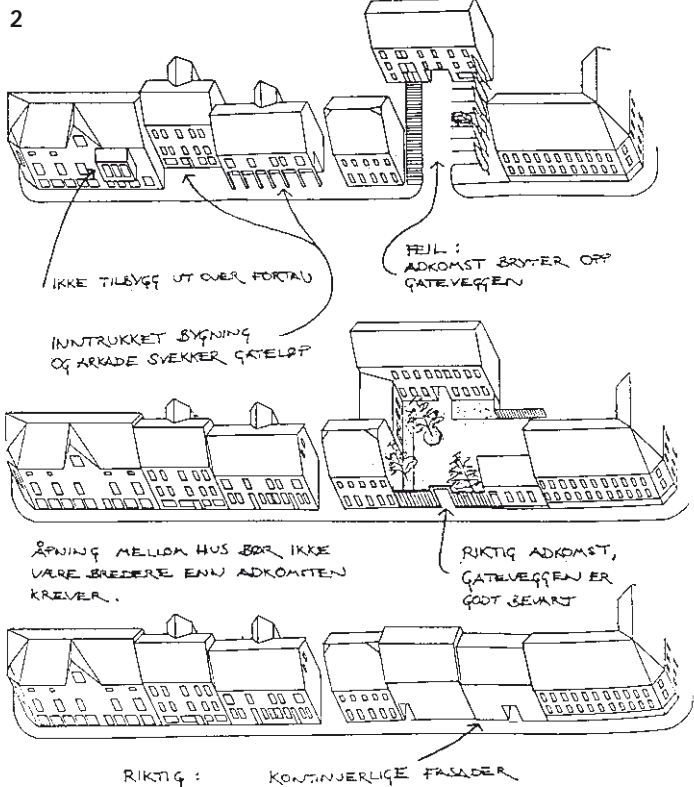 2
IKKE TILBYGG UT OVER FORTAU
FEIL :
ADKOMST BRYTER OPP
GATEVEGGEN
INNTRUKKET BYGNING
OG ARKADE SVEKKER GATELØP
ÅPNING MELLOM HUS BØR IKKE
VÆRE BREDERE ENN ADKOMSTEN
KREVER.
RIKTIG ADKOMST,
GATEVEGGEN ER
GODT BEVART
RIKTIG : KONTINUERLIGE FASADER